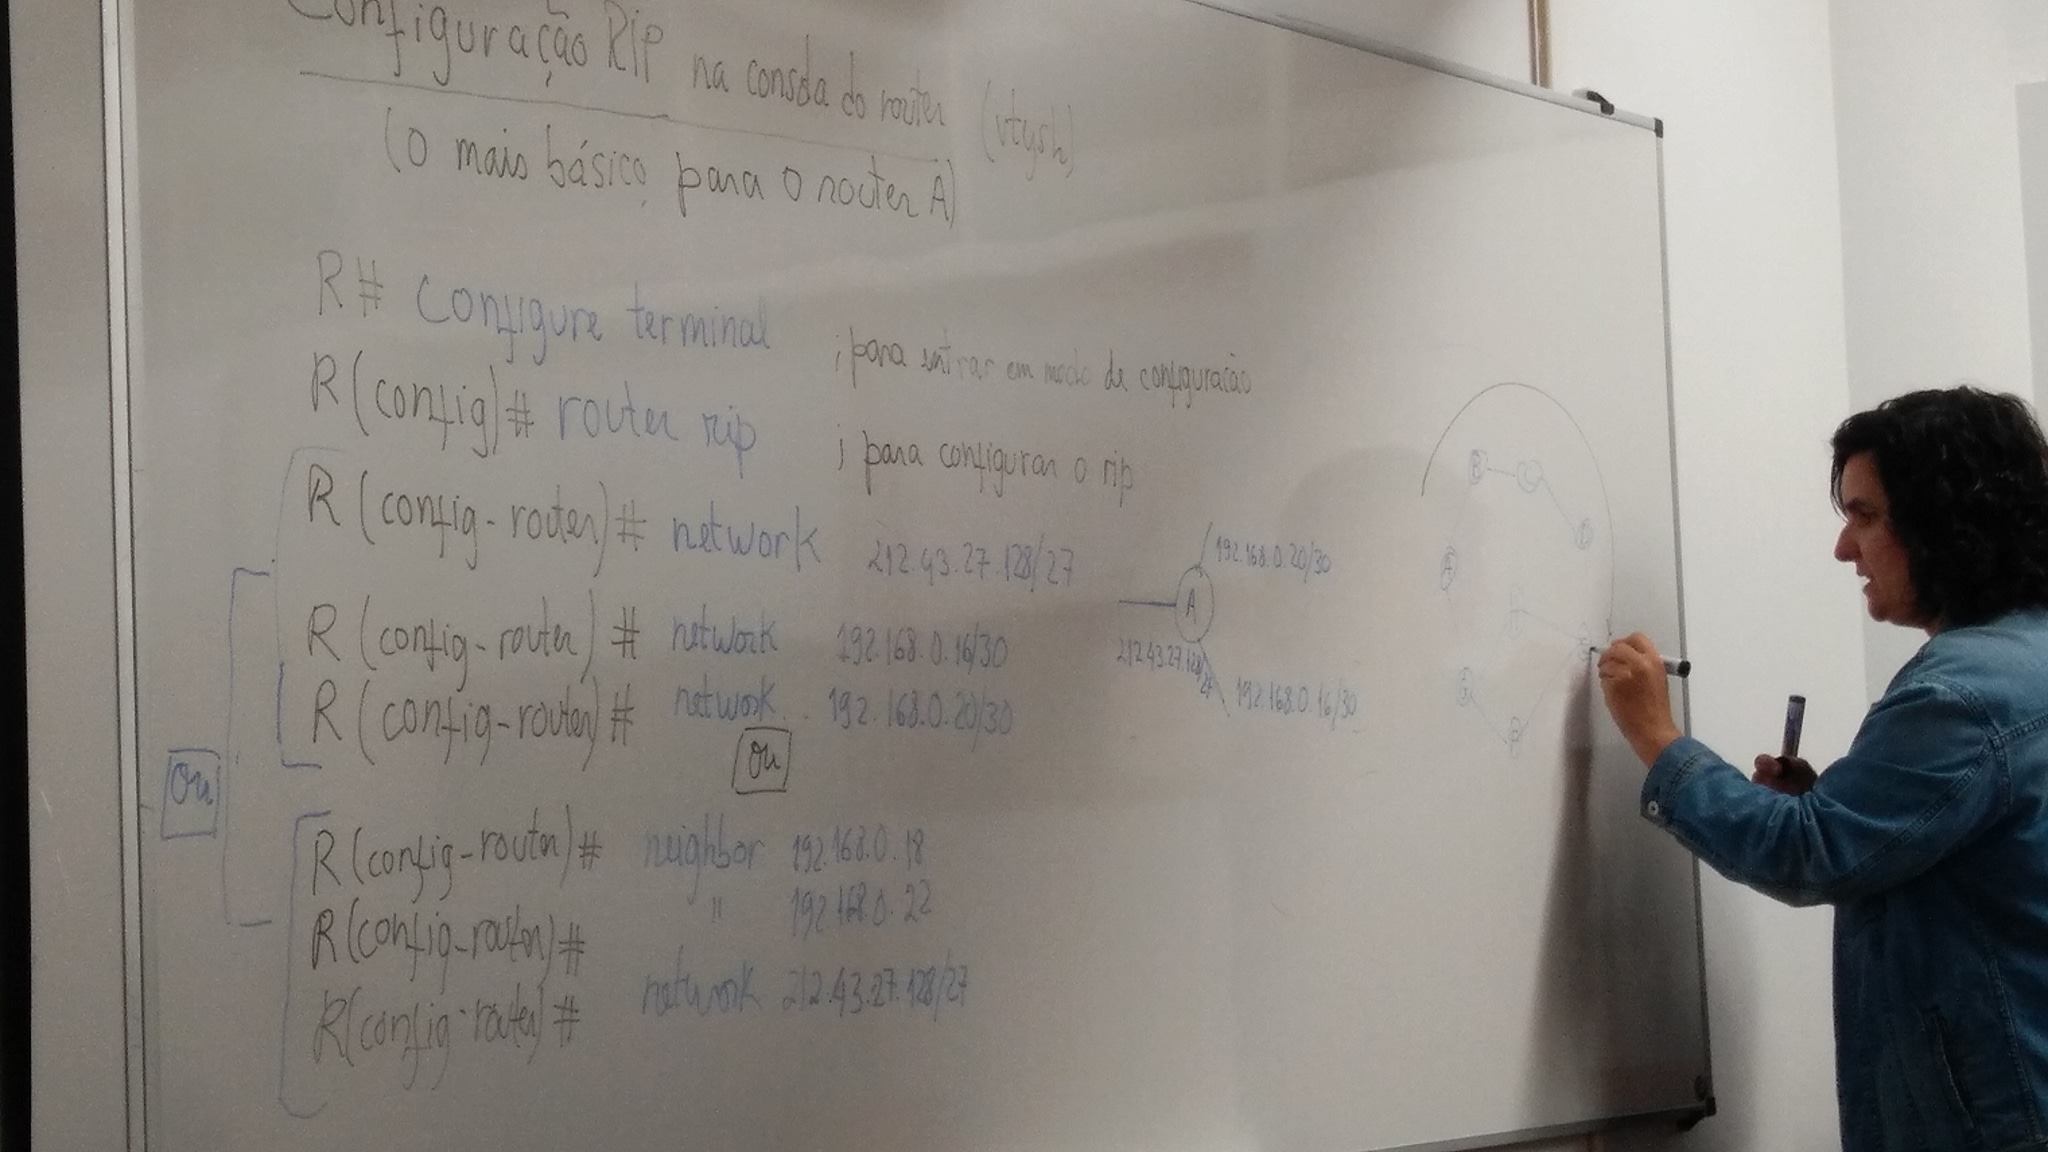 Configuração RIP na consola do router (vtysh)
(O mais básico, para o router A)
R# configure terminal ; para entrar em modo de configuração
R(config)# router rip ; para configurar o rip
R(config-router)# network 212.43.27.128/27
R(config-router)# network 192.168.0.16/30
R(config-router)# network 192.168.0.20/30
ou
ou
R(config-router)# neighbor 192.168.0.18
R(config-router)# " 192.168.0.22
R(config-router)# network 212.43.27.128/27
192.168.0.20/30
A
212.43.27.128/27
192.168.0.16/30
B
C
A